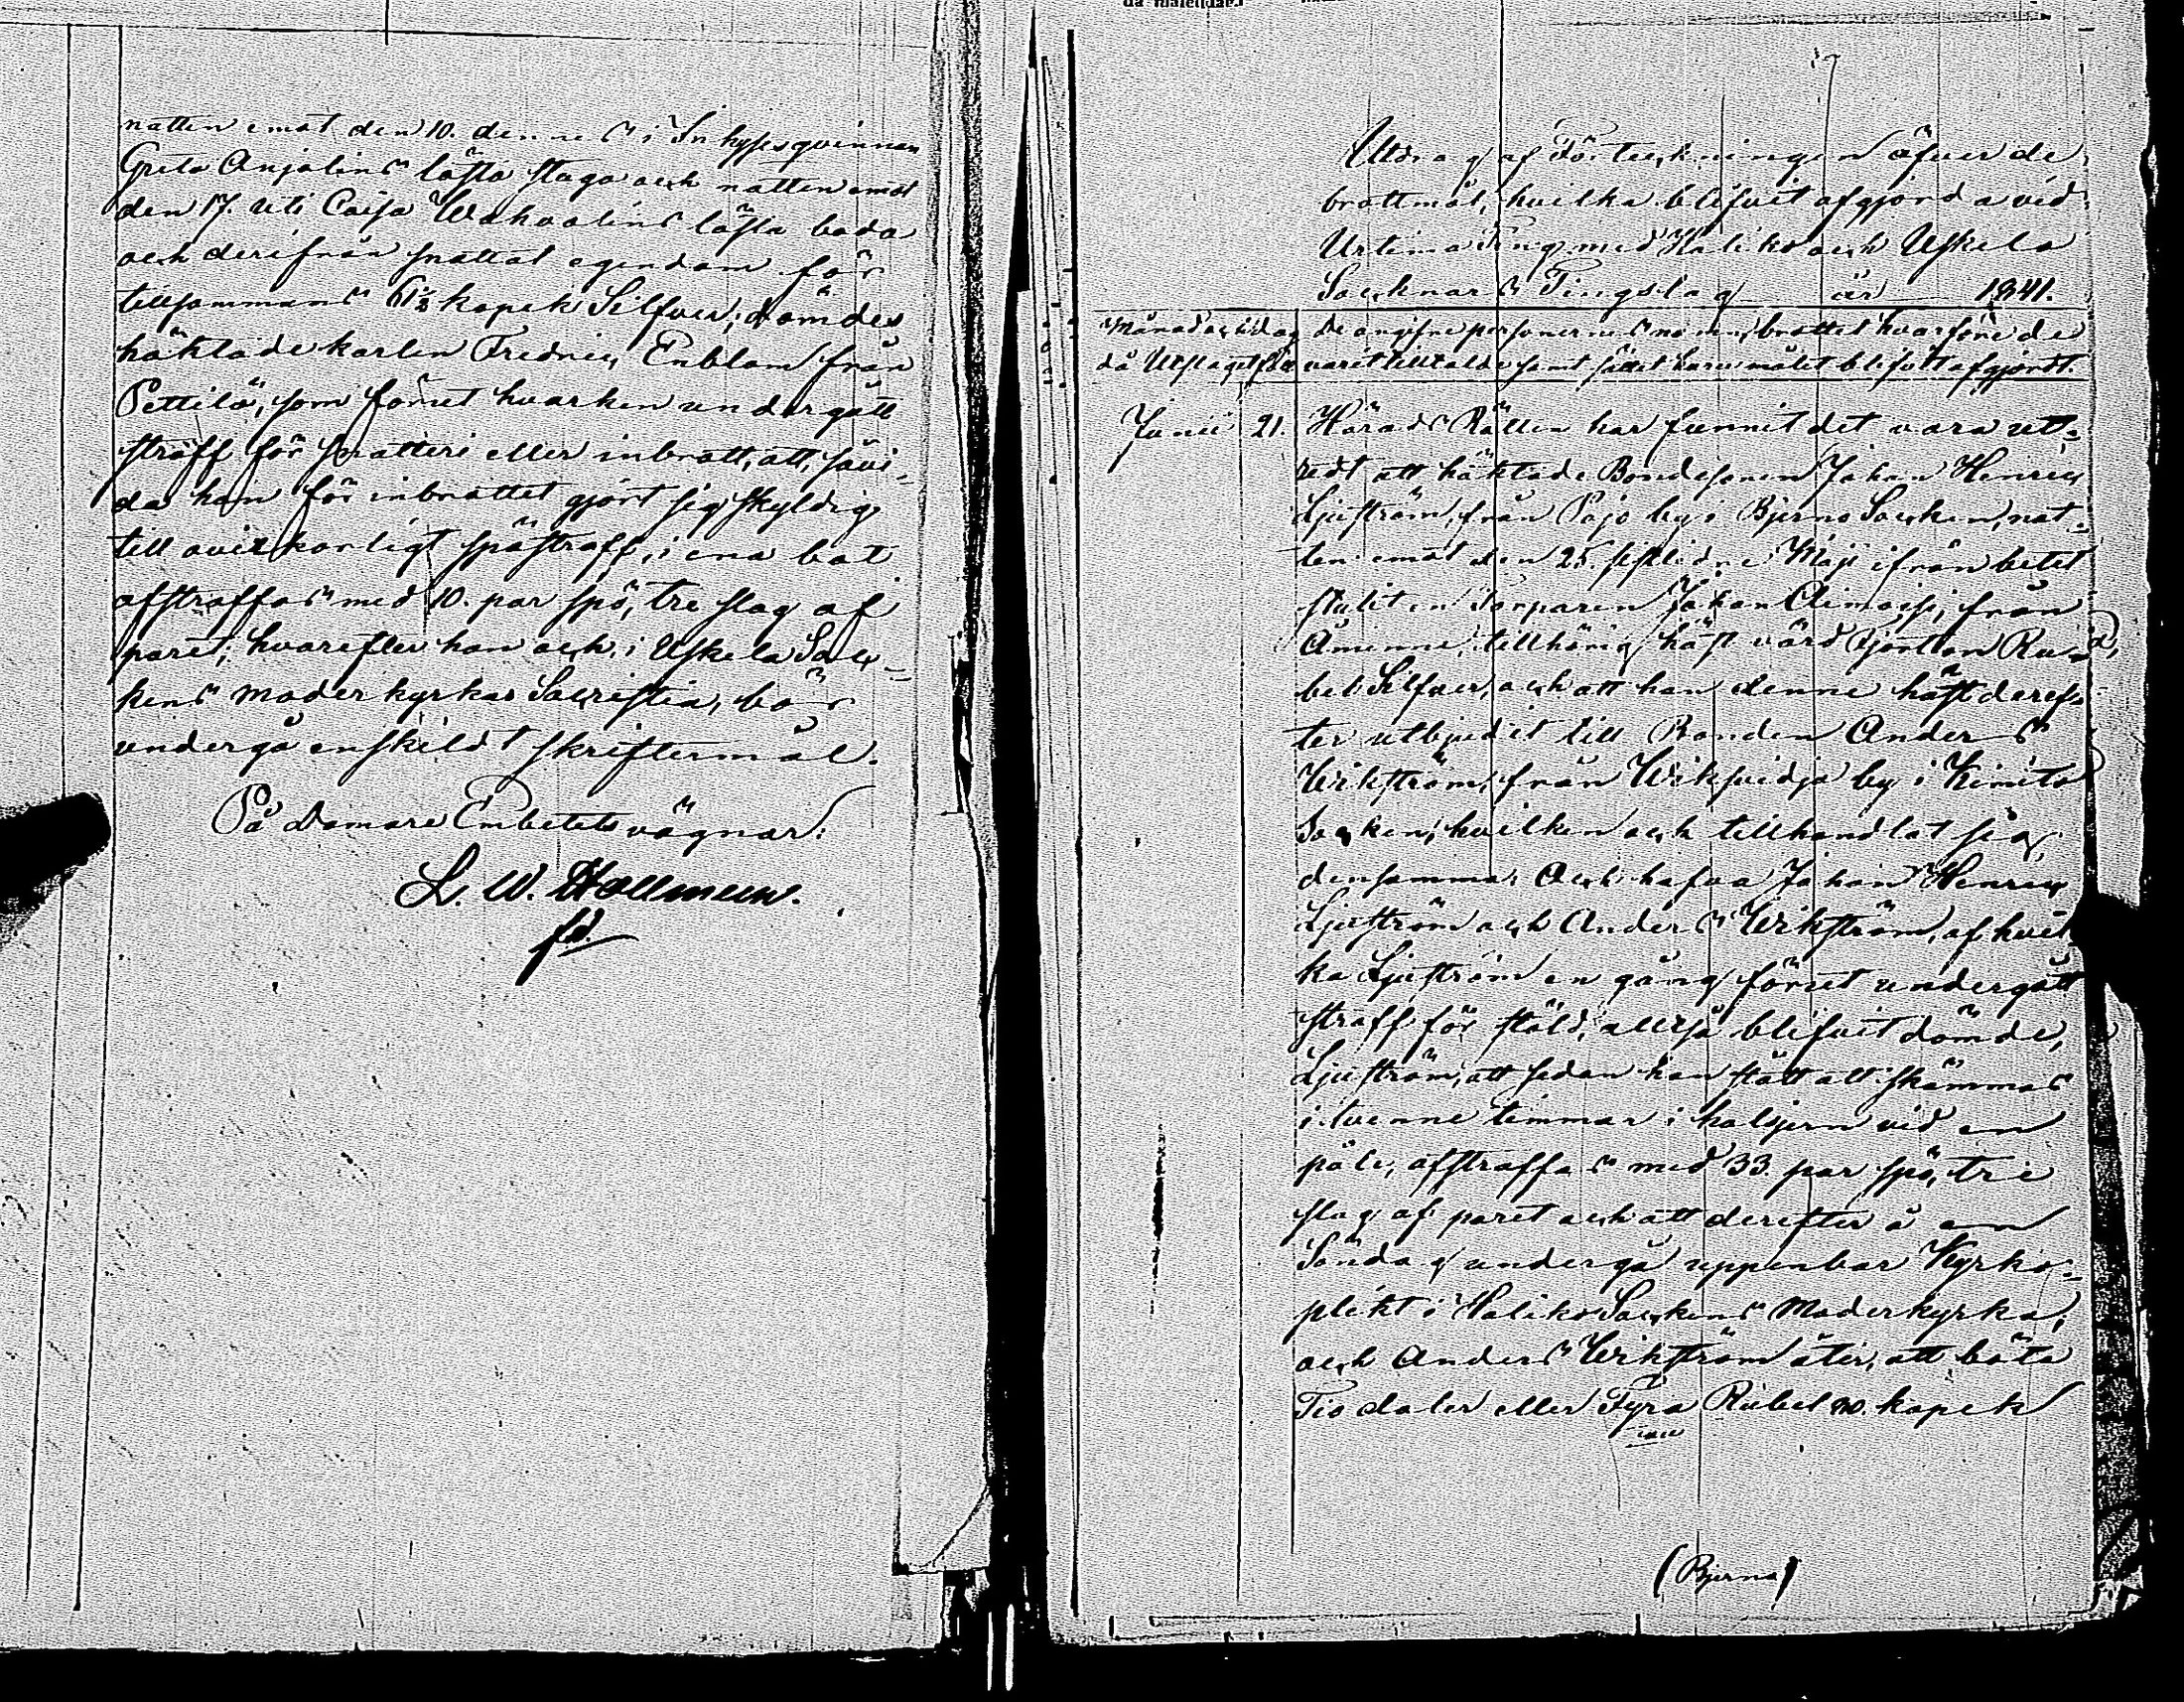 natten emot den 10. dennes i Inhysesqvinnan
Greta Anjalins låsta stuga och natten emot
den 17. uti Caisa Wahoolins låsta boda
och derifrån snattat egendom för
tillsammans 61½ kopek Silfver; dömdes
häktade karlen Fredric Enblom från
Pettilä, som förut hvarken undergått
straff för snatteri eller inbrott, att, såvi-
da han för inbrottet gjort sig skyldig
till ovilkorligt spöstraff, i ena bot
afstraffas med 10. par spö, tre slag af
paret; hvarefter han och i Uskela Soc-
kens moderkyrkas Sacristia, bör
undergå enskildt skriftermål.
På Domare Embetets vägnar:
L. W. Hallmeen.
fd.
Utdrag af Förteckningen öfver de
brottmål, hvilka blifvit afgjorda vid
Urtima Ting med Haliko och Uskela
Socknars Tingslag år 1841.
Månad och dag de angifne personernes namn, brottet hvarföre de
då Utslaget varit tilltalde samt sättet huru målet blifvit afgjordt.
Junii 21. Härads Rätten har funnit det vara ut-
redt att häktade Bondesonen Johan Henric
Ljuström, från Pojo by i Bjerno Socken, nat-
ten emot den 25. sistledne Maji ifrån betet
stulit en Torparen Johan Aimoisp, från
Åminne, tillhörig häst värd Fjorton Ru-
bel Silfver, och att han denne häst deref-
ter utbjudit till Bonden Anders
Wikström, från Wiksvidja by i Kimito
Socken, hvilken och tillhandlat sig
densamma. Och hafva Johan Henric
Ljuström och Anders Wikström, af hvil-
ka Ljuström en gång förut undergått
straff för stöld, alltså blifvit dömde,
Ljuström, att sedan han stått att skämmas
i tvenne timmar i halsjern vid en
påle, afstraffas med 33 par spö, tre
slag af paret och att derefter å en
Söndag undergå uppenbar Kyrko-
plikt i Haliko Sockens Moderkyrka,
och Anders Wikström åter, att böta
Tio daler eller Fyra Rubel 80. kopek
(Bjerno)